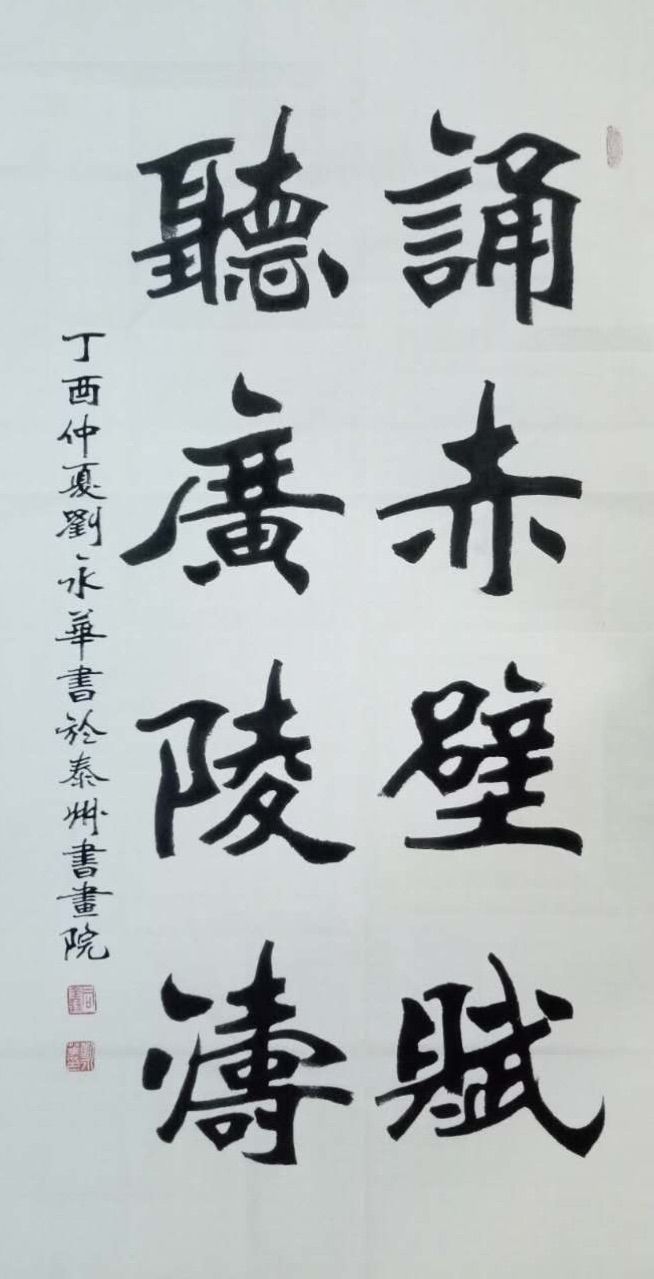 誦赤壁賦
聽廣陵濤
丁酉仲夏劉永華書於泰州書畫院